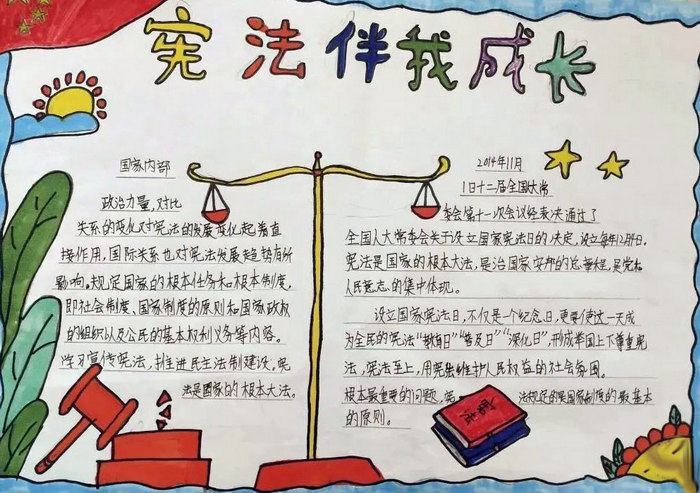 宪法伴我成长
国家内部
政治力量,对比
关系的变化对宪法的发展变化起着直
接作用,国际关系也对宪法发展趋势有所
影响。规定国家的根本任务和根本制度,
即社会制度、国家制度的原则和国家政权
的组织以及公民的基本权利义务等内容。
学习宣传宪法,推进民主法制建设。宪
法是国家的根本大法。
2014年11月
1日十二届全国人大常
委会第十一次会议经表决通过了
全国人大常委会关于设立国家宪法日的决定,设立每年12月4日。
宪法是国家的根本大法,是治国安邦的总章程,是党和
人民意志的集中体现。
设立国家宪法日,不仅是一个纪念日,更要使这一天成
为全民的宪法“教育日”“普及日”“深化日”,形成举国上下尊重宪
法,宪法至上,用宪法维护人民权益的社会氛围。
根本最重要的问题,宪
法规定的是国家制度的最基本
的原则。
宪法